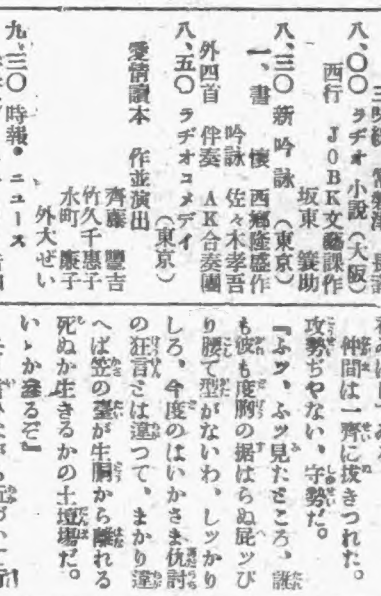 八、〇〇 ラヂオ小説(大阪)
西行 JOBK文藝課作
坂東 簑助
八、三〇 新吟詠(東京)
一、書懐 西郷隆盛作
吟詠 佐々木孝吾
外四首 伴奏 AK合奏團
八、五〇 ラヂオコメデイ
(東京)
愛情讀本 作並演出
齊藤 豐吉
竹久千惠子
水町 庸子
外大ぜい
九、三〇 時報。ニュース
仲間は一齊に拔きつれた。
攻勢ぢやない、守勢だ。
『ふツ、ふツ見たところ、誰
も彼も度胸の据はらぬ屁ツぴ
り腰で型がないわ、しツかり
しろ、今度のはいかさま仇討
の狂言とは違つて、まかり違
へば笠の臺が生胴から離れる
死ぬか生きるかの土壇場だ。
いゝか參るぞ』